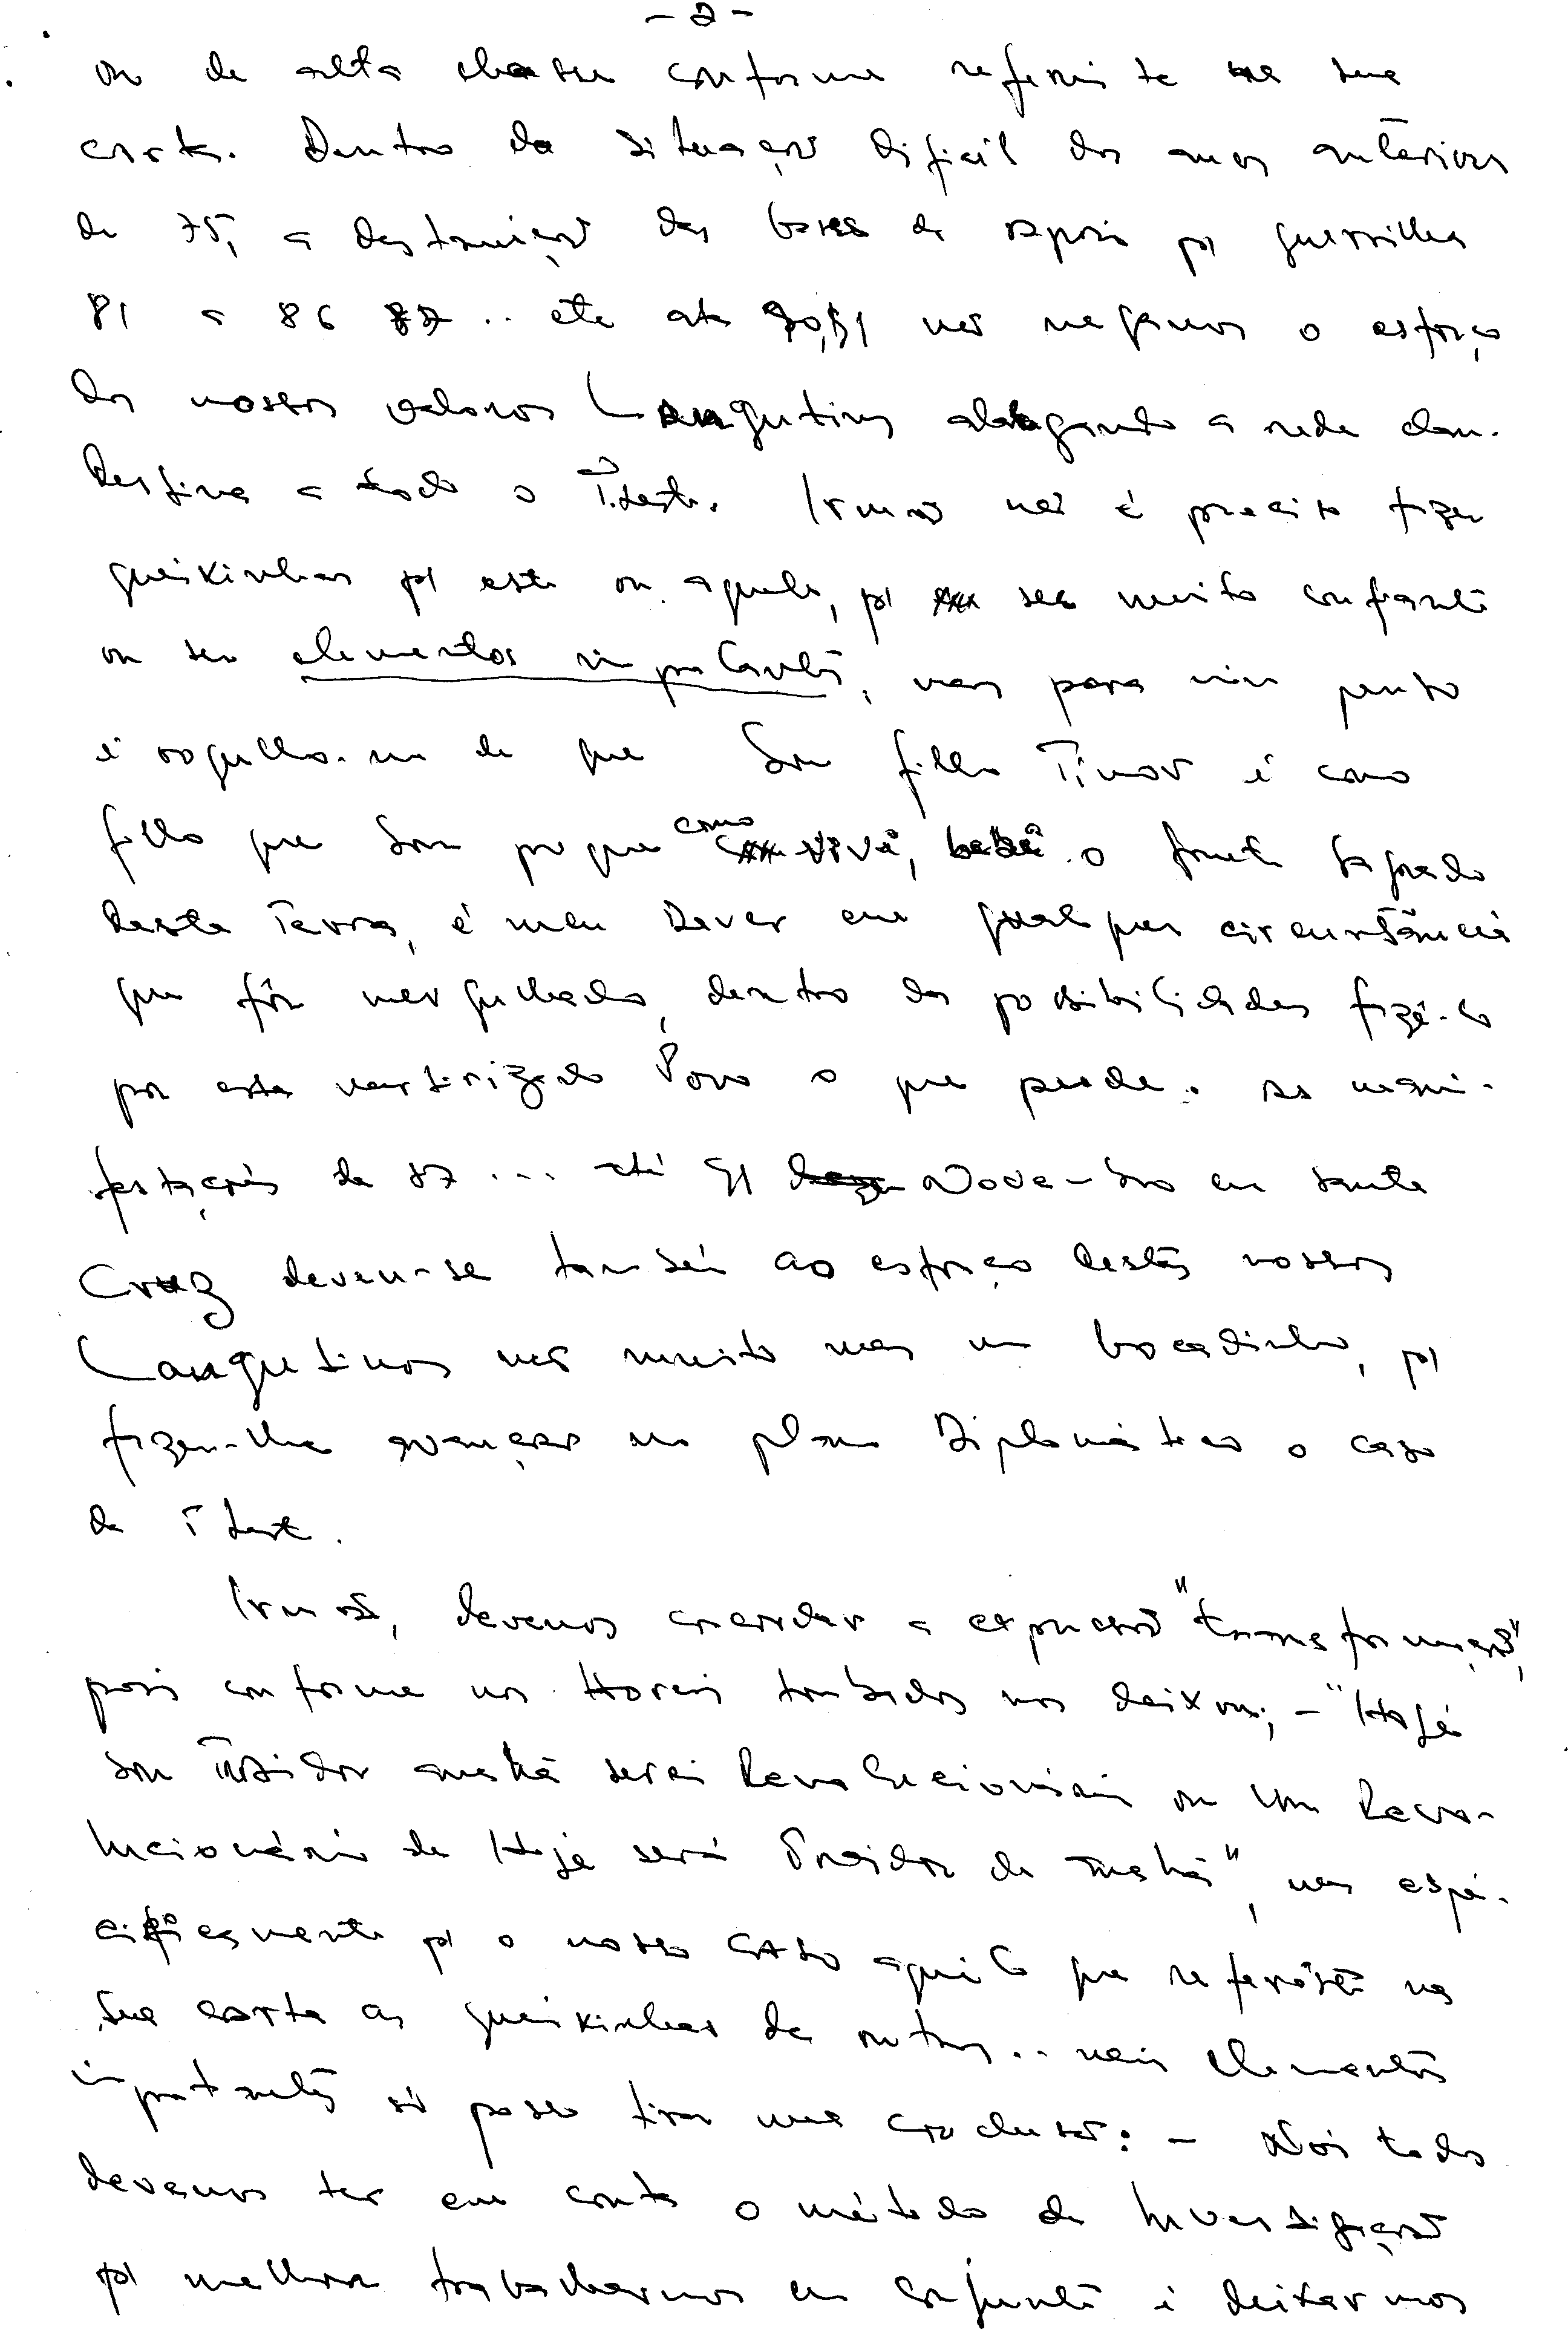 - 2 -
ou de alta classe conforme referiste na sua
carta. Dentro da situação dificil dos anos antēriores
de 75, a destruição das bases de apoio p/ guerrilha
81 a 86 87 .. etc ate 90,91 não negamos o esforço
dos nossos valoros Langutins alargando a rede clan-
destina a todo o T.Leste. Irmão não é preciso fazer
queixinhas p/ este ou aquele, p/ ser muito confiante
ou ser elementos importantēs, mas para mim penso
é orgulho-me de que sou filho Timor é como
filho que sou porque como vivê, bebê o fruto sagrado
desta Terra, é meu Dever em qualquer circunstância
que fôr mergulhado, dentro das possibilidades fazê-lo
por esta martirizado Povo o que pude. As mani-
festações de 87 ... até 91 Novembro em Santa
Cruz devem-se também ao esforço destēs nossos
Languetinos não muito mas um bocadinho, p/
fazer-lhe avançar no plano Diplomático o caso
de T Leste.
Irmão, devemos encarar a expressão "transformação",
pois conforme nos Horois tombados nos deixou; - "Hojé
sou Traidor amahã serei Revolucionário ou Um Revo-
lucionário de Hoje será Traidor de amahã", mas espé-
cificamente p/ o nosso CASO aquilo que referistē na
sua carta as queixinhas de outros .. mais elementōs
importantēs só posso tirar uma conclusão: - Nós todos
devemos ter em conta o método de Investigação
p/ melhor trabalharmos em conjuntō é deixarmos